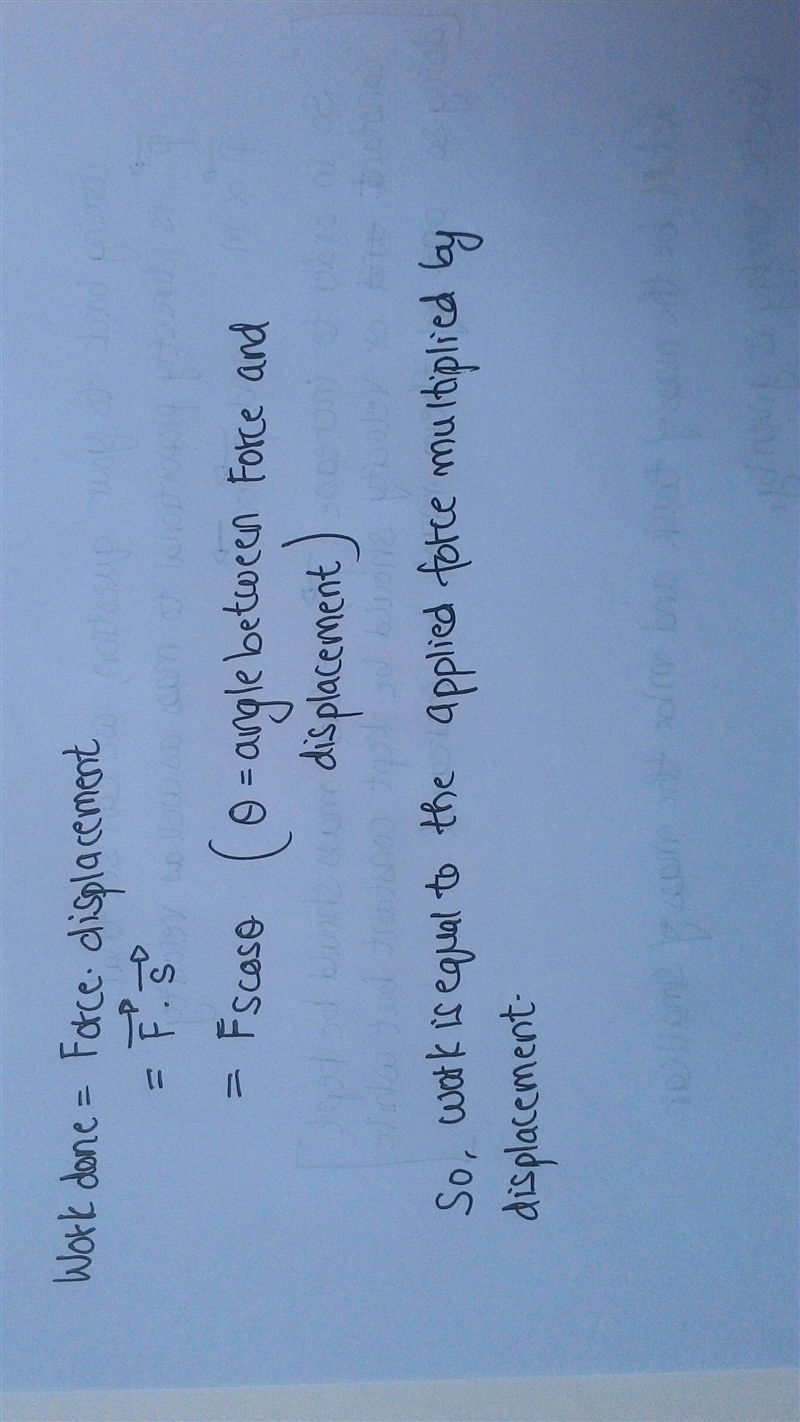 Work done = Force . displacement
= F⃗ . s⃗
= Fscosθ (θ = angle between Force and
displacement)
So, work is equal to the applied force multiplied by
displacement.